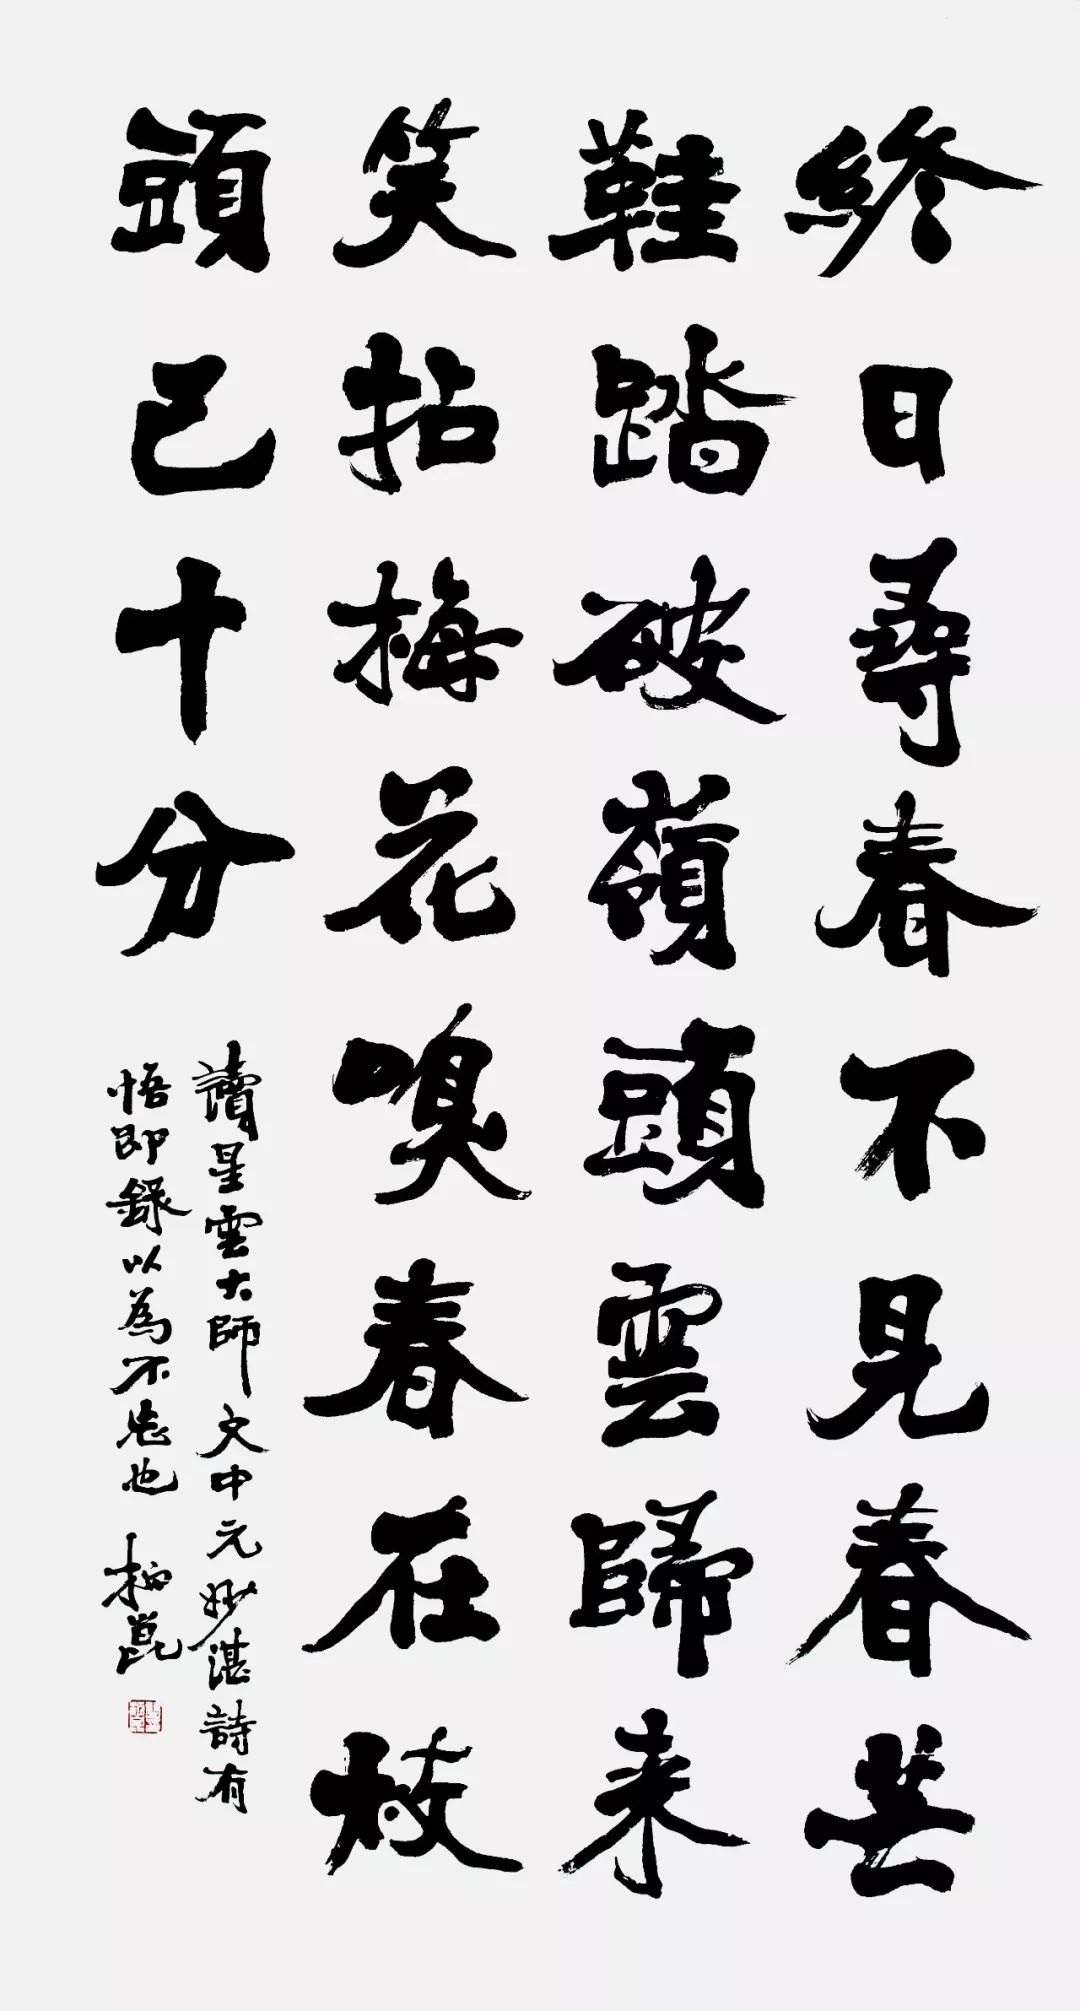 終日尋春不見春芒
鞋踏破嶺頭雲歸来
笑拈梅花嗅春在枝
頭已十分
讀星雲大師文中元妙湛詩有
悟即錄以為不忘也